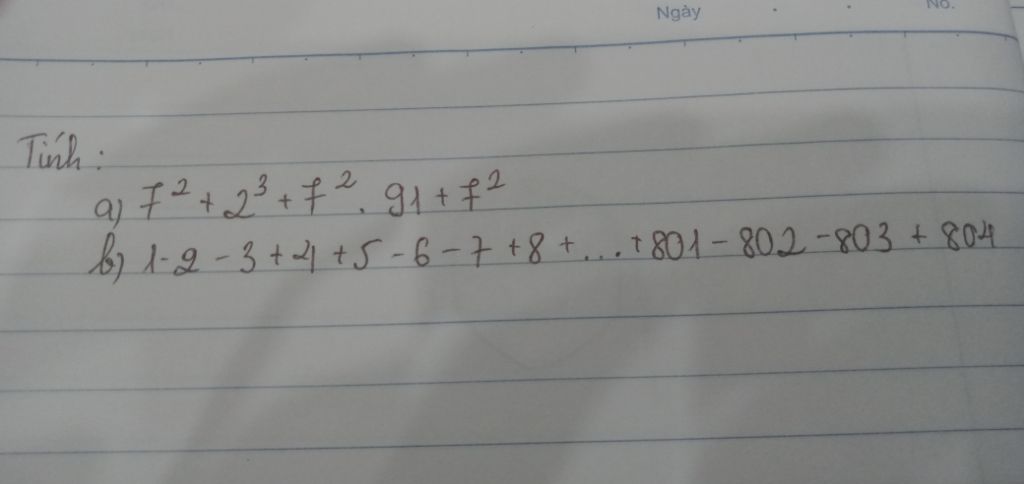 Ngày
No.
Tính:
a) 7² + 2³ + 7². 91 + 7²
b) 1-2 - 3 + 4 + 5 - 6 - 7 + 8 + ... + 801 - 802 - 803 + 804